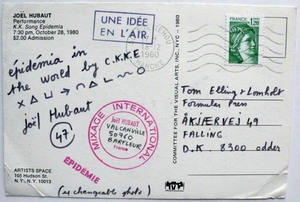 JOËL HUBAUT
Performance
K.K. Song Epidemia
7:30 pm, October 28, 1980
$2.00 Admission
UNE IDÉE
EN L'AIR
1980
epidemia in
the world by C.K.K.E
joël Hubaut
47
MIXAGE INTERNATIONAL
JOËL HUBAUT
VALCANVILLE
50760
BARFLEUR
France
EPIDEMIE
(exchangeable photo)
ARTISTS SPACE
105 Hudson St.
N.Y. N.Y. 10013
COMMITTEE FOR THE VISUAL ARTS, INC. NYC - 1980
1,20
Tom Elling + Lomholt
Formular Press
AKJÆRVEJ 49
FALLING
D.K. 8300 odder